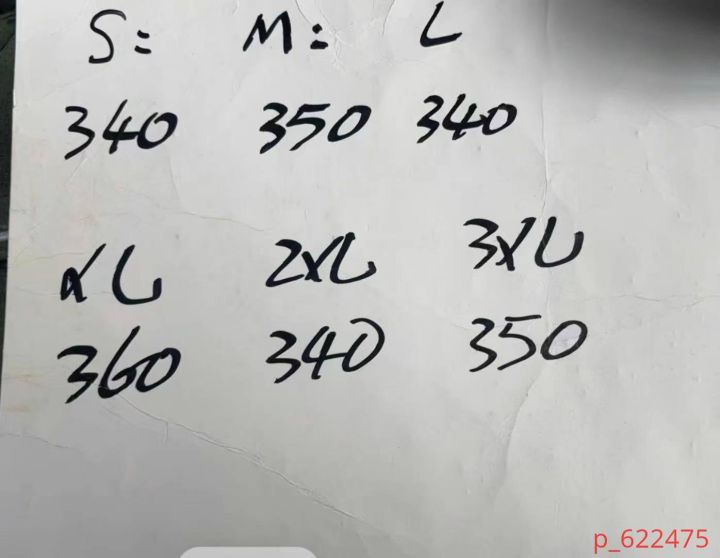 S: M: L
340 350 340
XL 2XL 3XL
360 340 350
p_622475